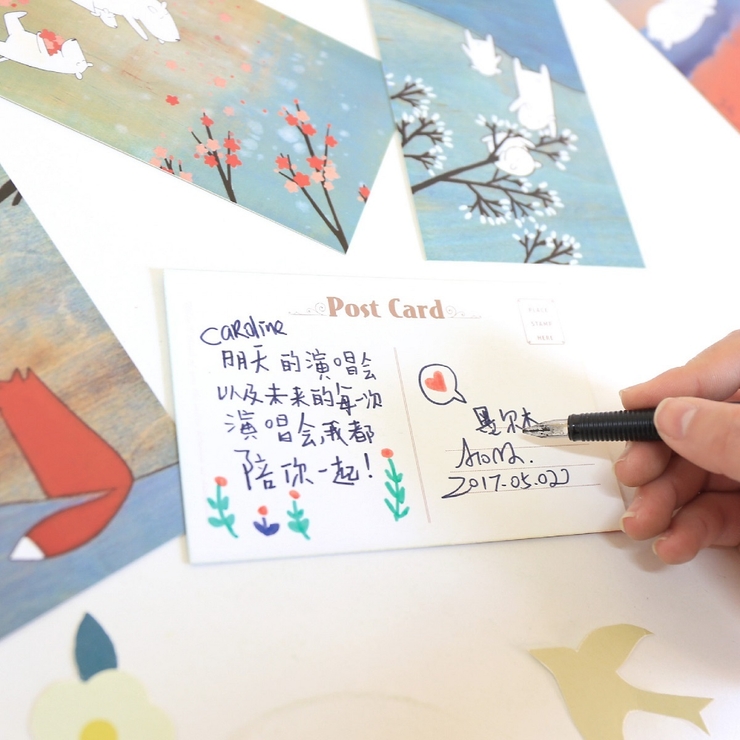 Post Card
PLACE
STAMP
HERE
Caroline
明天的演唱会
以及未来的每一次
演唱会,我都
陪你一起!
2017.05.02